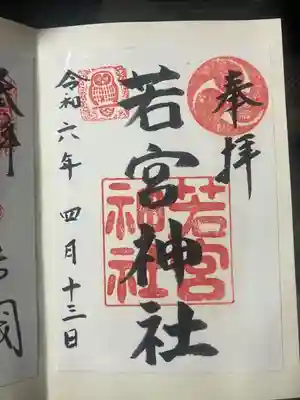 奉拝
若宮神社
若宮
神社
令和六年 四月十三日
國